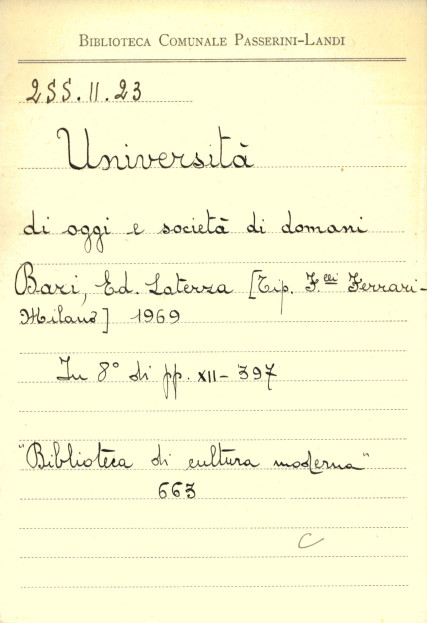 BIBLIOTECA COMUNALE PASSERINI-LANDI
2SS.II.23
Università
di oggi e società di domani
Bari, Ed. Laterza [Tip. F.lli Ferrari-
Milano] 1969
In 8° di pp. XII-397
"Biblioteca di cultura moderna"
663
C